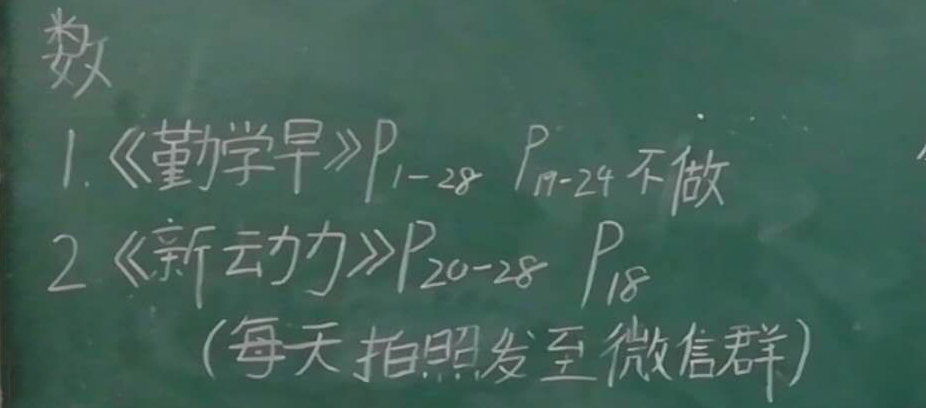 数
1.《勤学早》P1-28 P19-24不做
2《新动力》P20-28 P18
(每天拍照发至微信群)